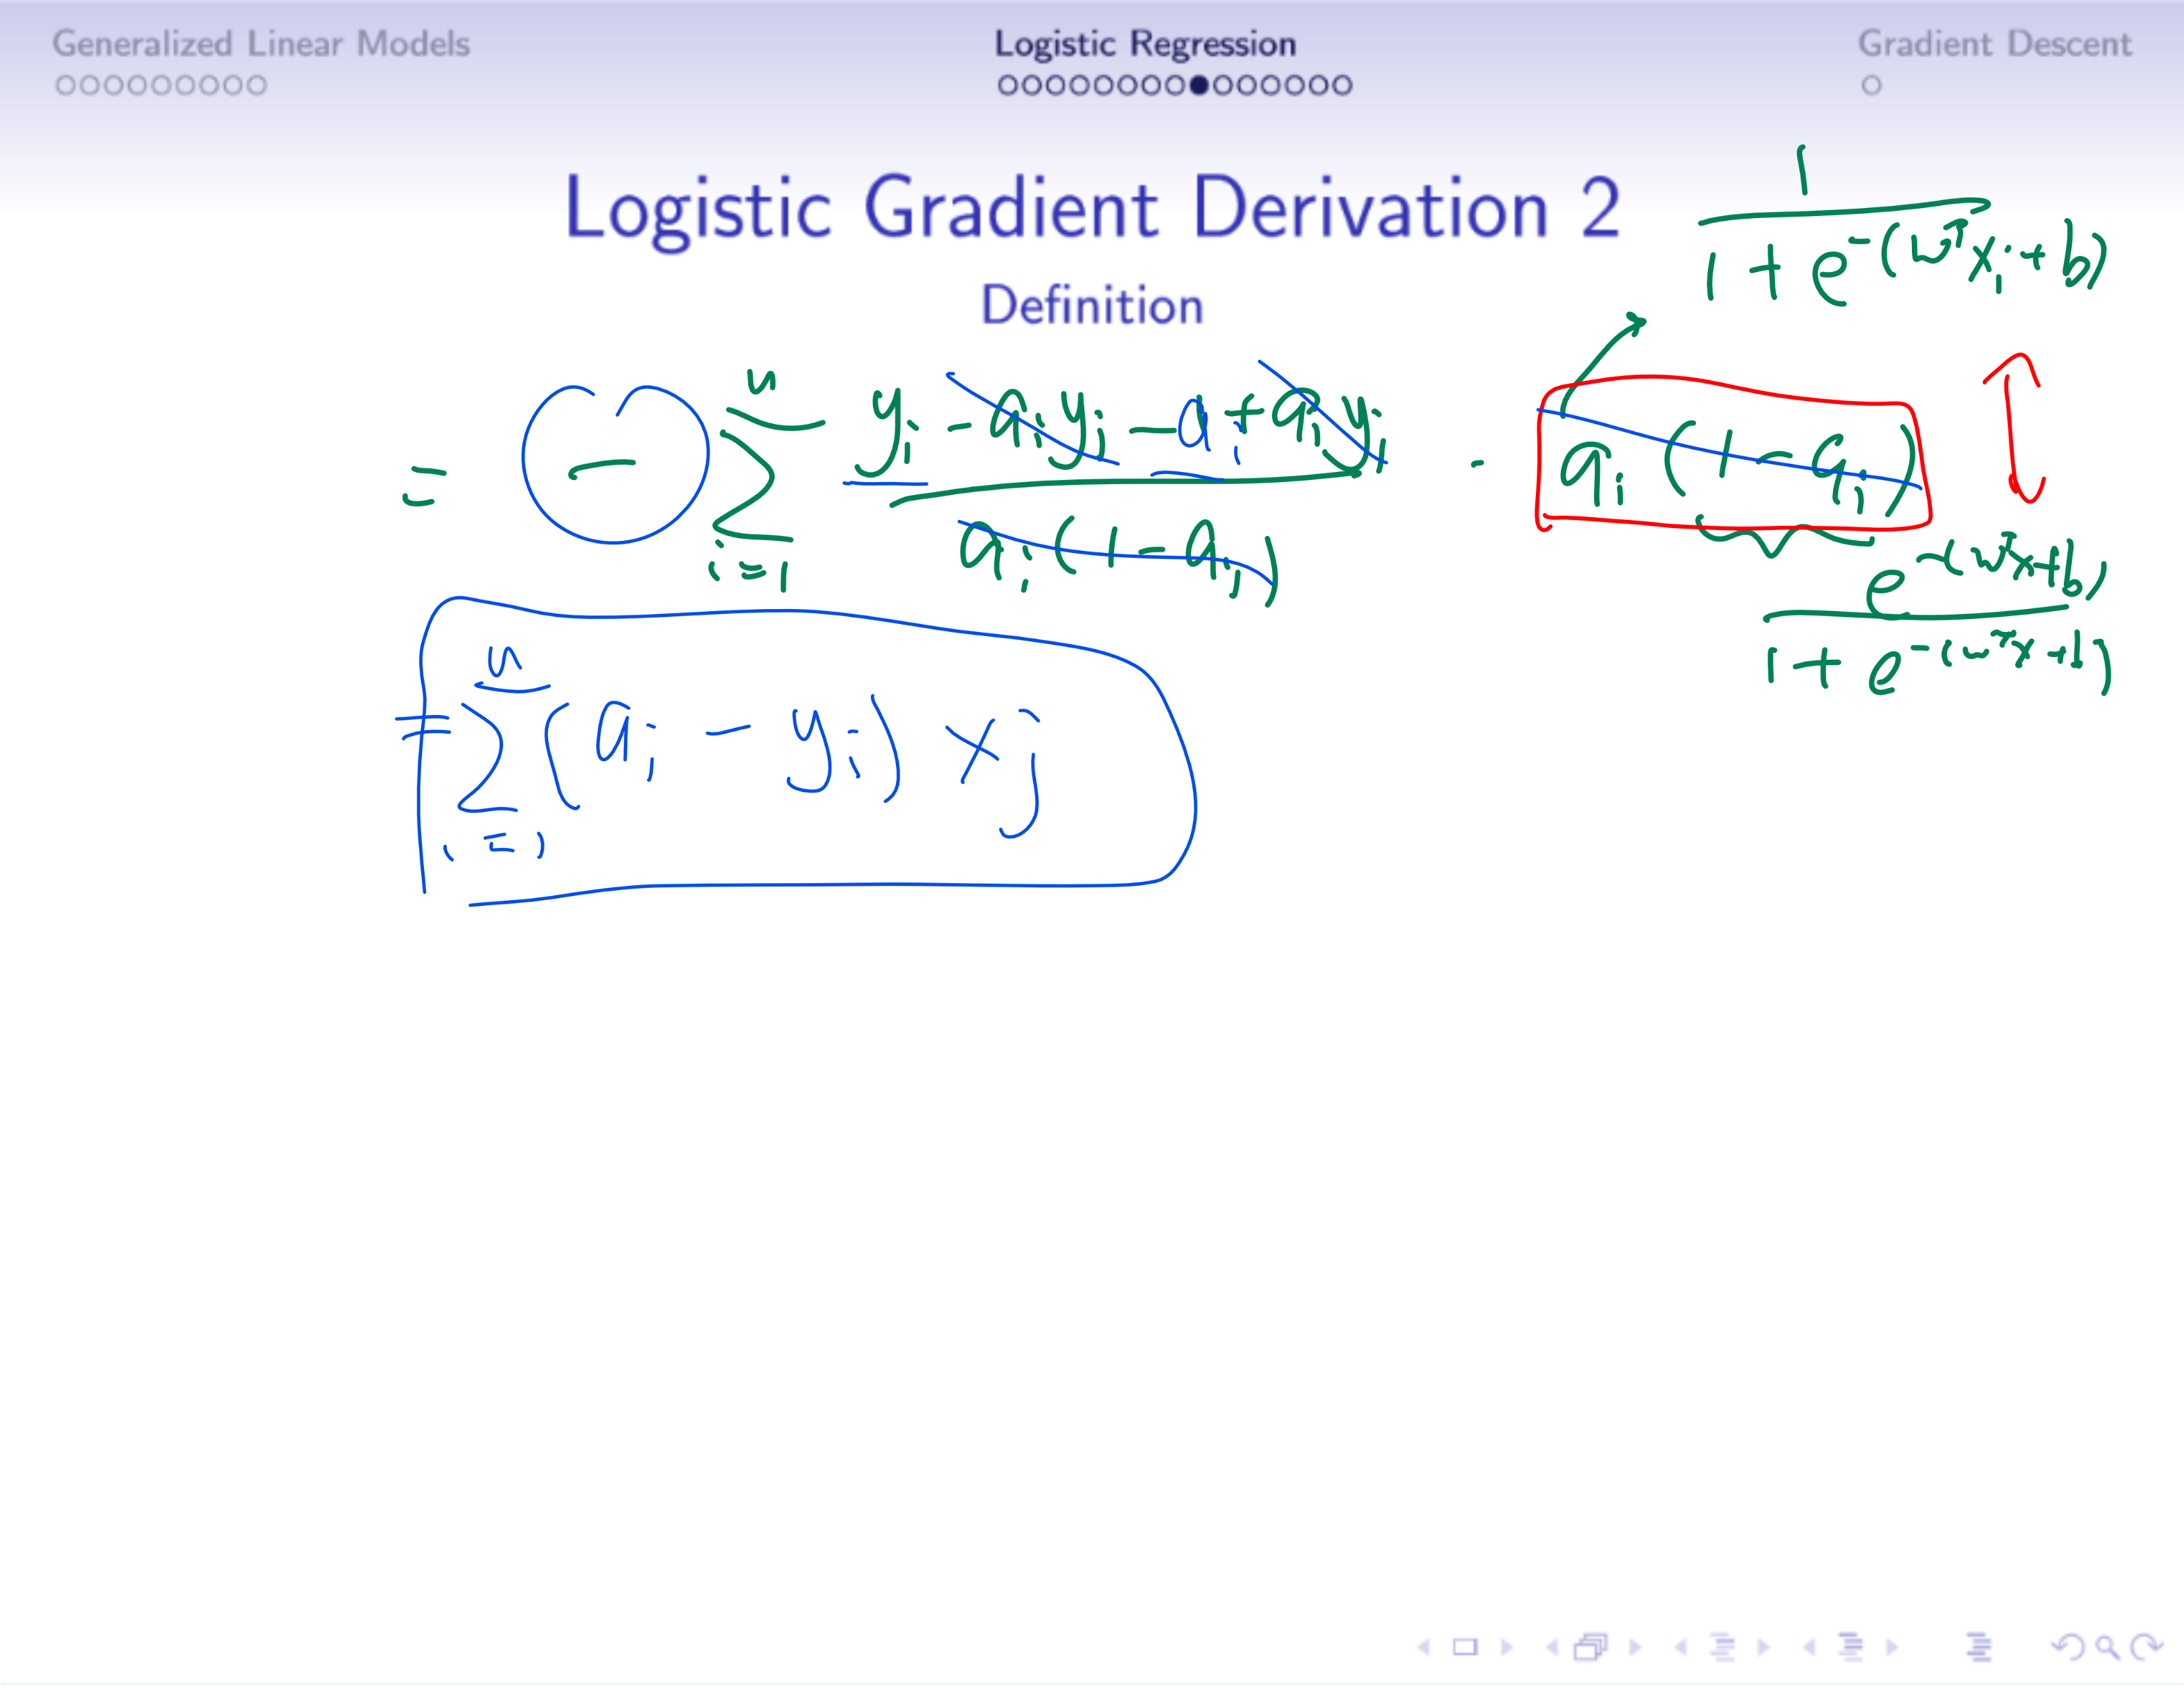 Generalized Linear Models Logistic Regression Gradient Descent
Logistic Gradient Derivation 2
Definition
1 / (1 + e^{-(w^T x_i + b)})
= - \sum_{i=1}^{n} (y_i - a_i y_i - a_i + a_i y_i) / (a_i (1 - a_i)) · a_i (1 - a_i)
e^{-(w^T x + b)} / (1 + e^{-(w^T x + b)})
= \sum_{i=1}^{n} (a_i - y_i) x_j